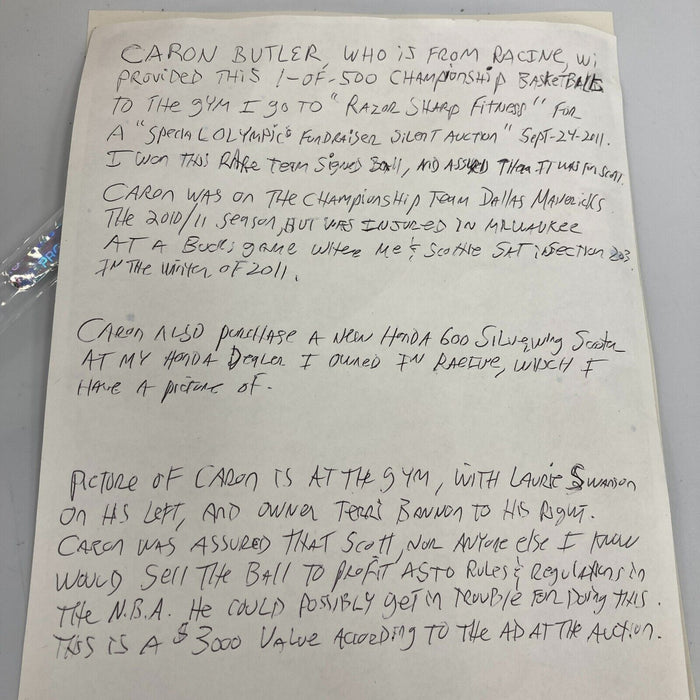 CARON BUTLER, WHO iS FROM RACINE, Wi
PROVIDED THIS 1-OF-500 CHAMPIONSHIP BASKETBALL
TO THE GYM I GO TO "RAZOR SHARP FITNESS" FOR
A "SPECIAL OLYMPICS FUNDRAISER SILENT AUCTION" SEPT-24-2011.
I WON THIS RARE TEAM SIGNED BALL, AND ASSURED THEM IT WAS FOR SCOTT.
CARON WAS ON THE CHAMPIONSHIP TEAM DALLAS MAVERICKS
THE 2010/11 SEASON, BUT WAS INJURED IN MILWAUKEE
AT A BUCKS GAME WHERE ME & SCOTTIE SAT IN SECTION 203
IN THE WINTER OF 2011.
CARON ALSO PURCHASE A NEW HONDA 600 SILVERWING SCOOTER
AT MY HONDA DEALER I OWNED IN RACINE, WHICH I
HAVE A PICTURE OF.
PICTURE OF CARON IS AT THE GYM, WITH LAURIE SWANSON
ON HIS LEFT, AND OWNER TERRI BANNON TO HIS RIGHT.
CARON WAS ASSURED THAT SCOTT, NOR ANYONE ELSE I KNOW
WOULD SELL THE BALL TO PROFIT AS TO RULES & REGULATIONS IN
THE N.B.A. HE COULD POSSIBLY GET IN TROUBLE FOR DOING THIS.
THIS IS A $3000 VALUE ACCORDING TO THE AD AT THE AUCTION.